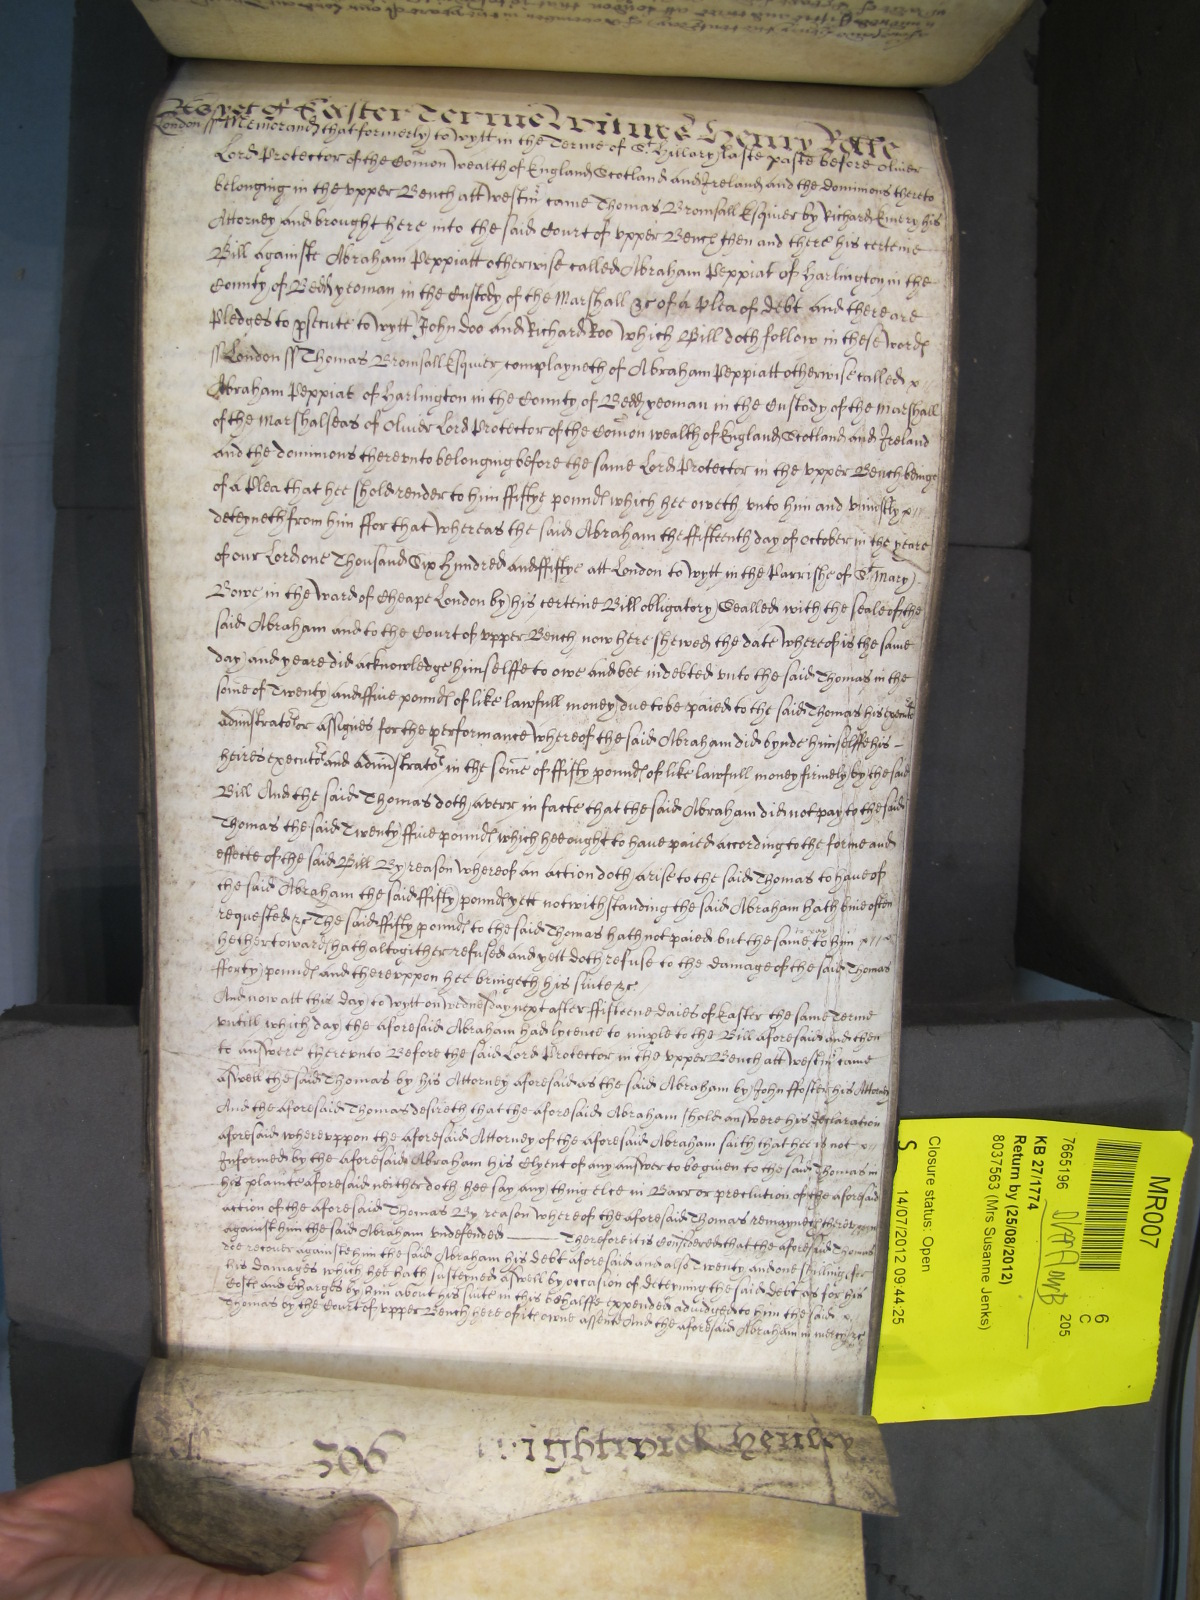 As yet of Easter Terme Witnes Henry Rolle
London ss Memorand that formerly to wytt in the Terme of St Hillary laste paste before Oliver
Lord Protector of the Comon wealth of England Scotland and Ireland and the dominions thereto
belonging in the vpper Bench att Westm came Thomas Bromsall Esquier by Richard Emery his
Attorney and brought here into the said Court of vpper Bench then and there his certeine
Bill againste Abraham Peppiatt otherwise called Abraham Peppiat of Harlington in the
County of Bedd yeoman in the Custody of the Marshall &c of a Plea of debt and there are
Pledges to psecute to wytt John Doo and Richard Roo which Bill doth follow in these words
ss London ss Thomas Bromsall Esquier complayneth of Abraham Peppiatt otherwise called x
Abraham Peppiat of Harlington in the County of Bedd yeoman in the Custody of the Marshall
of the Marshalseas of Oliver Lord Protector of the Comon wealth of England Scotland and Ireland
and the dominions therevnto belonging before the same Lord Protector in the vpper Bench beinge
of a Plea that hee shold render to him ffiftye pounds which hee oweth vnto him and vniustly
deteyneth from him ffor that whereas the said Abraham the ffifteenth day of October in the yeare
of our Lord one Thousand Six hundred and ffiftye att London to wytt in the Parrishe of St Mary
Bowe in the ward of Cheape London by his certeine Bill obligatory Sealled with the seale of the
said Abraham and to the Court of vpper Bench now here shewed the date whereof is the same
day and yeare did acknowledge himselffe to owe and bee indebted vnto the said Thomas in the
some of Twenty and ffiue pounds of like lawfull money due to be paied to the said Thomas his executors
administrators or assignes for the performance whereof the said Abraham did bynde himselffe his
heires executors and administrators in the some of ffifty pounds of like lawfull money firmely by the said
Bill And the said Thomas doth averr in facte that the said Abraham did not pay to the said
Thomas the said Twenty ffiue pounds which hee ought to have paied according to the forme and
effecte of the said Bill By reason whereof an action doth arise to the said Thomas to have of
the said Abraham the said ffifty pounds yett notwithstanding the said Abraham hath bine often
requested &c The said ffifty pounds to the said Thomas hath not paied but the same to pay to him
hethertowards hath altogither refused and yett doth refuse to the damage of the said Thomas
fforty pounds and therevppon hee bringeth his suite &c
And now att this day to wytt on wednesday next after ffifteene daies of Easter the same Terme
vntill which day the aforesaid Abraham had lycence to imple to the Bill aforesaid and then
to answere therevnto Before the said Lord Protector in the vpper Bench att Westm came
aswell the said Thomas by his Attorney aforesaid as the said Abraham by John ffoster his Attorney
And the aforesaid Thomas desireth that the aforesaid Abraham shold answere his declaration
aforesaid wherevppon the aforesaid Attorney of the aforesaid Abraham saith that hee is not
Informed by the aforesaid Abraham his Clyent of any answer to be given to the said Thomas in
his plainte aforesaid neither doth hee say any thing else in Barr or preclution of the aforesaid
action of the aforesaid Thomas By reason whereof the aforesaid Thomas remayneth therevppon
against him the said Abraham vndefended Therefore it is Considered that the aforesaid Thomas
doe recover againste him the said Abraham his debt aforesaid and also Twenty and one shillings for
his damages which hee hath susteyned aswell by occasion of deteyning the said debt as for his
Costs and Charges by him about his suite in this behalffe expended adiudged to him the said
Thomas by the Court of vpper Bench here of its owne assente And the aforesaid Abraham in mercy &c
506 Wightwick Henley
MR007
7665196
205
6
C
KB 27/1774
Return by (25/08/2012)
8037563 (Mrs Susanne Jenks)
Closure status: Open
S
14/07/2012 09:44:25